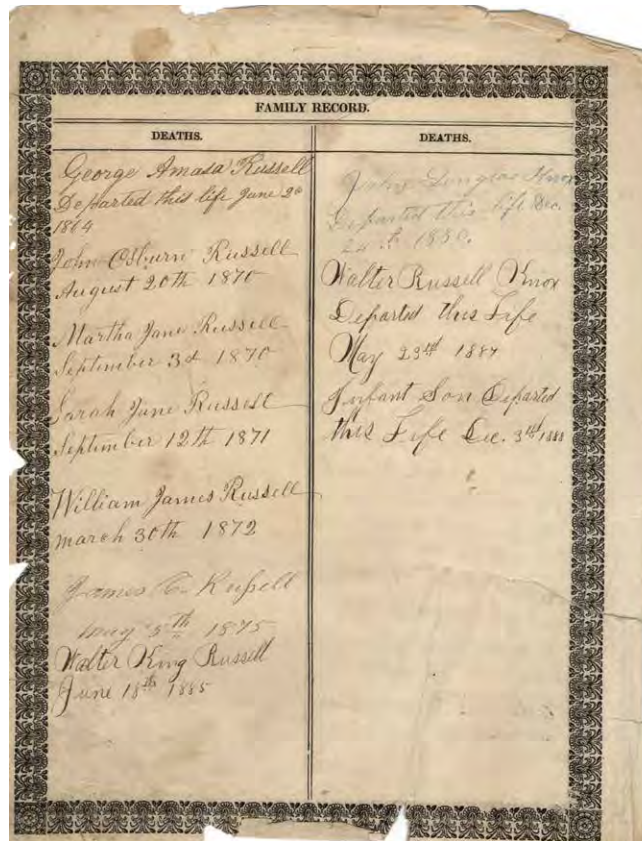 FAMILY RECORD.
DEATHS.
George Amasa Russell
Departed this life June 2d
1864
John Osburn Russell
August 20th 1870
Martha Jane Russell
September 3d 1870
Sarah Jane Russell
September 12th 1871
William James Russell
march 30th 1872
James C. Russell
may 5th 1875
Walter King Russell
June 18th 1885
DEATHS.
John Douglas Knox
Departed this life Dec.
24th 1880.
Walter Russell Knox
Departed this Life
May 29th 1884
Infant Son Departed
this Life Dec. 3rd 1888